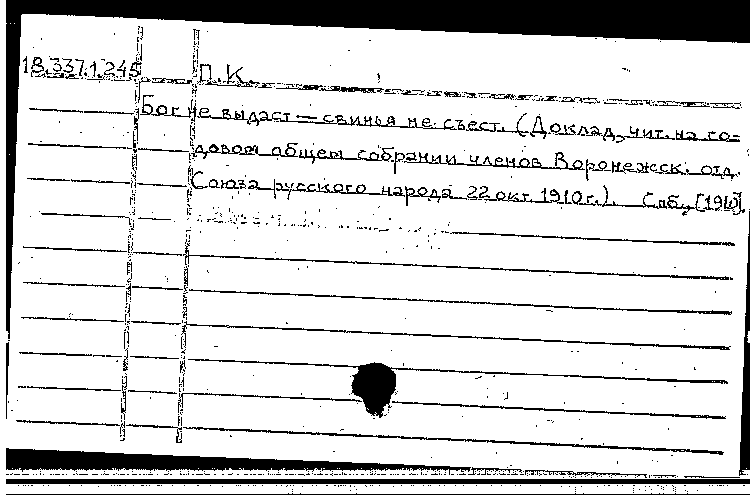 18.337.1.245 П.К.
Бог не выдаст — свинья не съест. (Доклад, чит. на го-
довом общем собрании членов Воронежск. отд.
Союза русского народа 22 окт. 1910 г.). Спб., [1910].